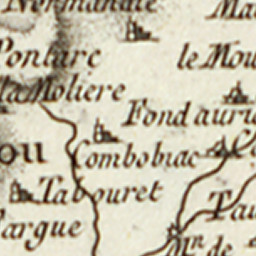 Normandie
Pontarc
le Mou
la Moliere
Fond auric
ou
Combobiac
Tabouret
Tau
argue
Mⁿ de